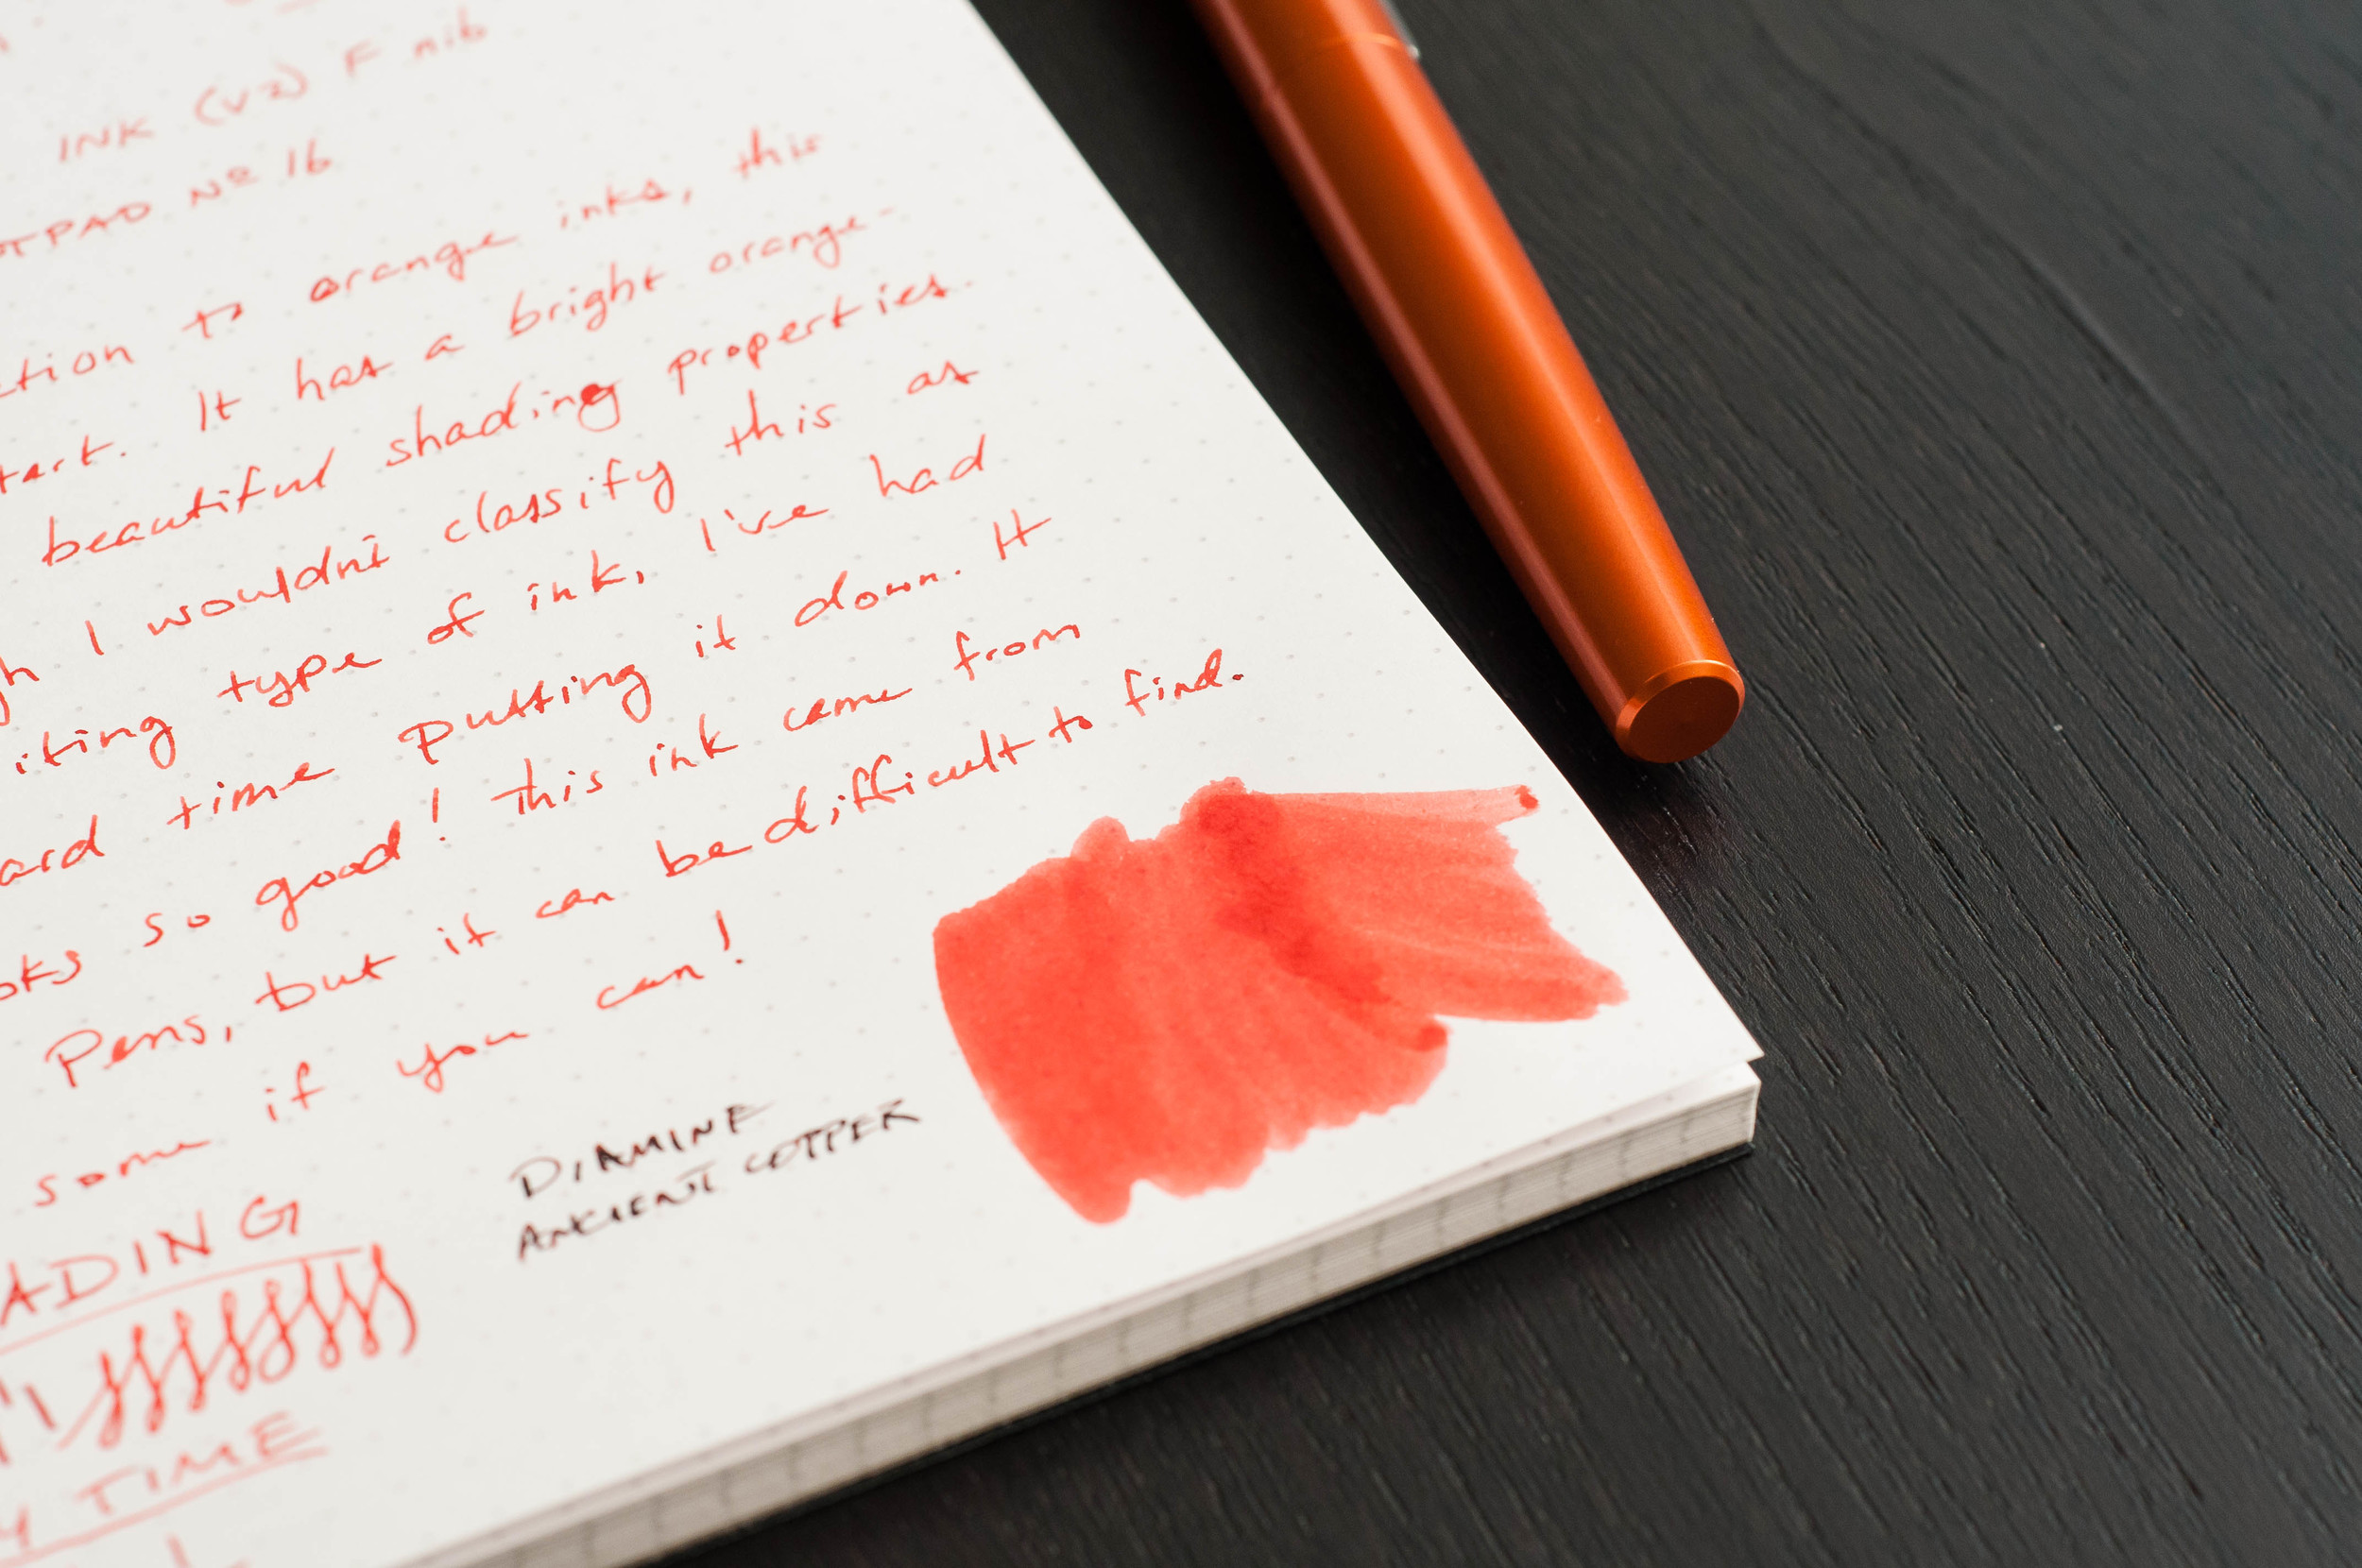 INK (V2) F nib
Nº 16
to orange inks, this
It has a bright orange-
beautiful shading properties.
I wouldn't classify this as
type of ink, I've had
time putting it down. It
so good! This ink came from
Pens, but it can be difficult to find.
some if you can!
DIAMINE
ANCIENT COPPER
TIME